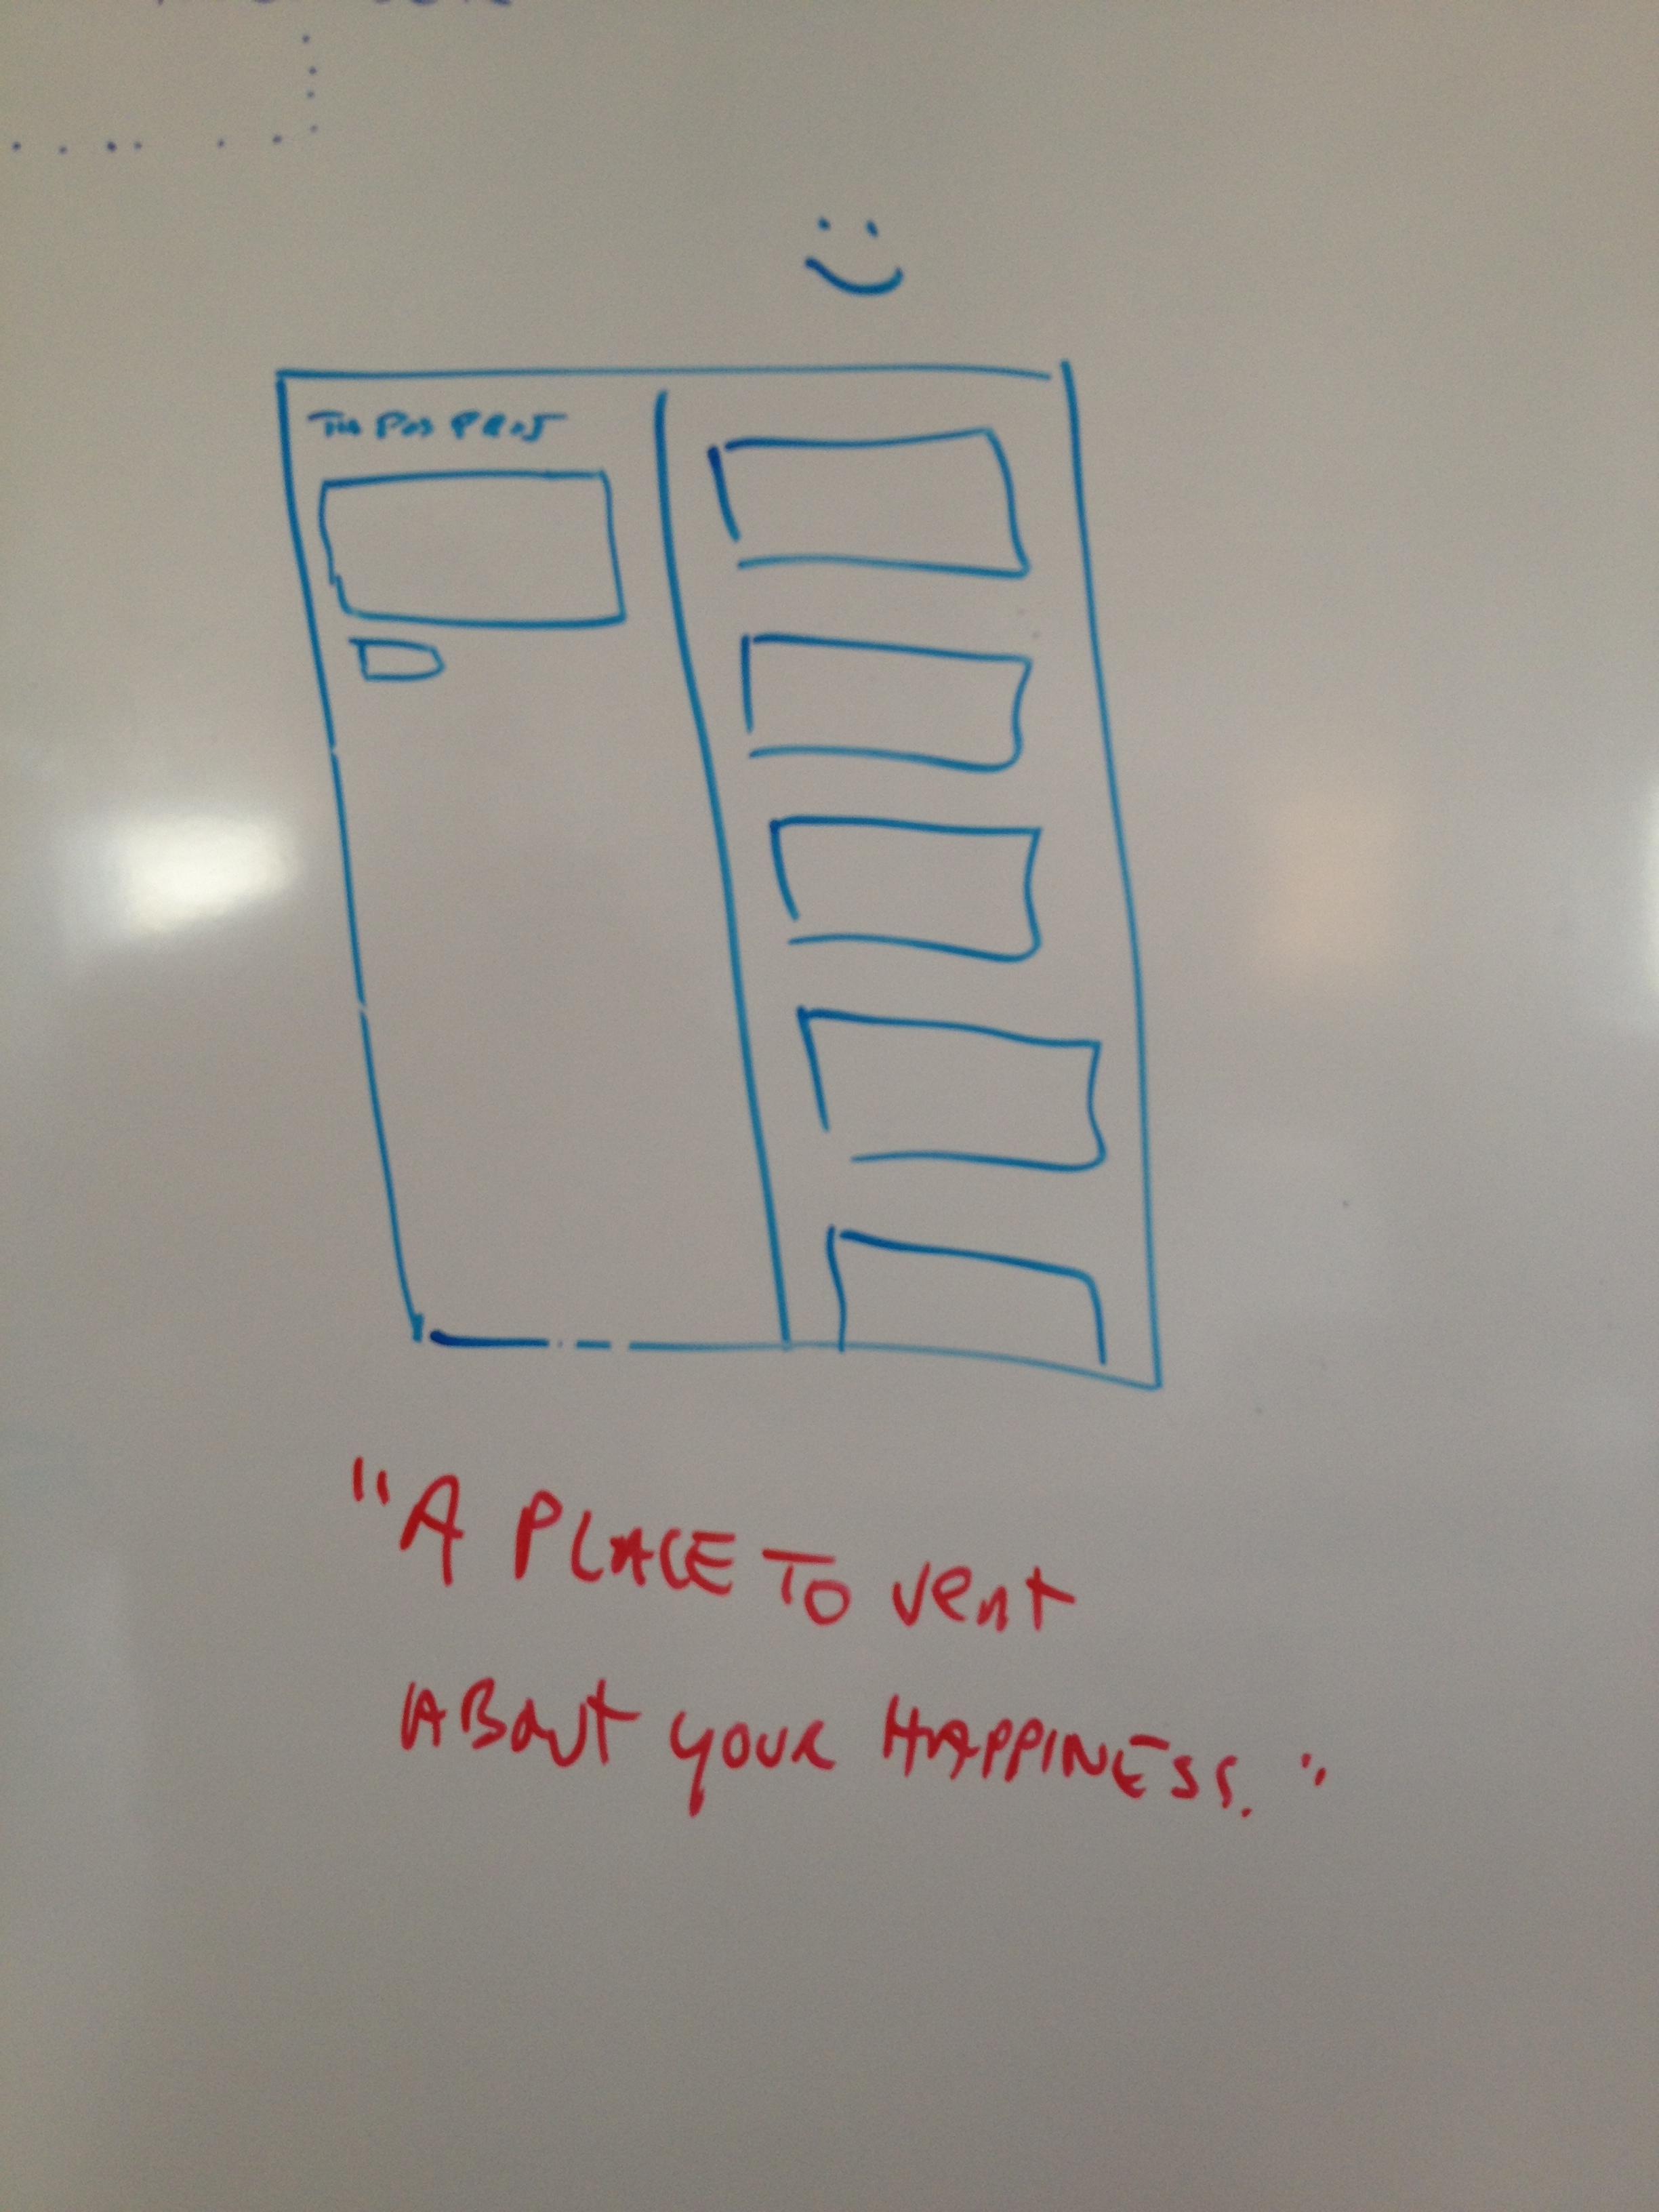 THE POS PROJ
"A PLACE TO vent
ABOUT YOUR HAPPINESS."